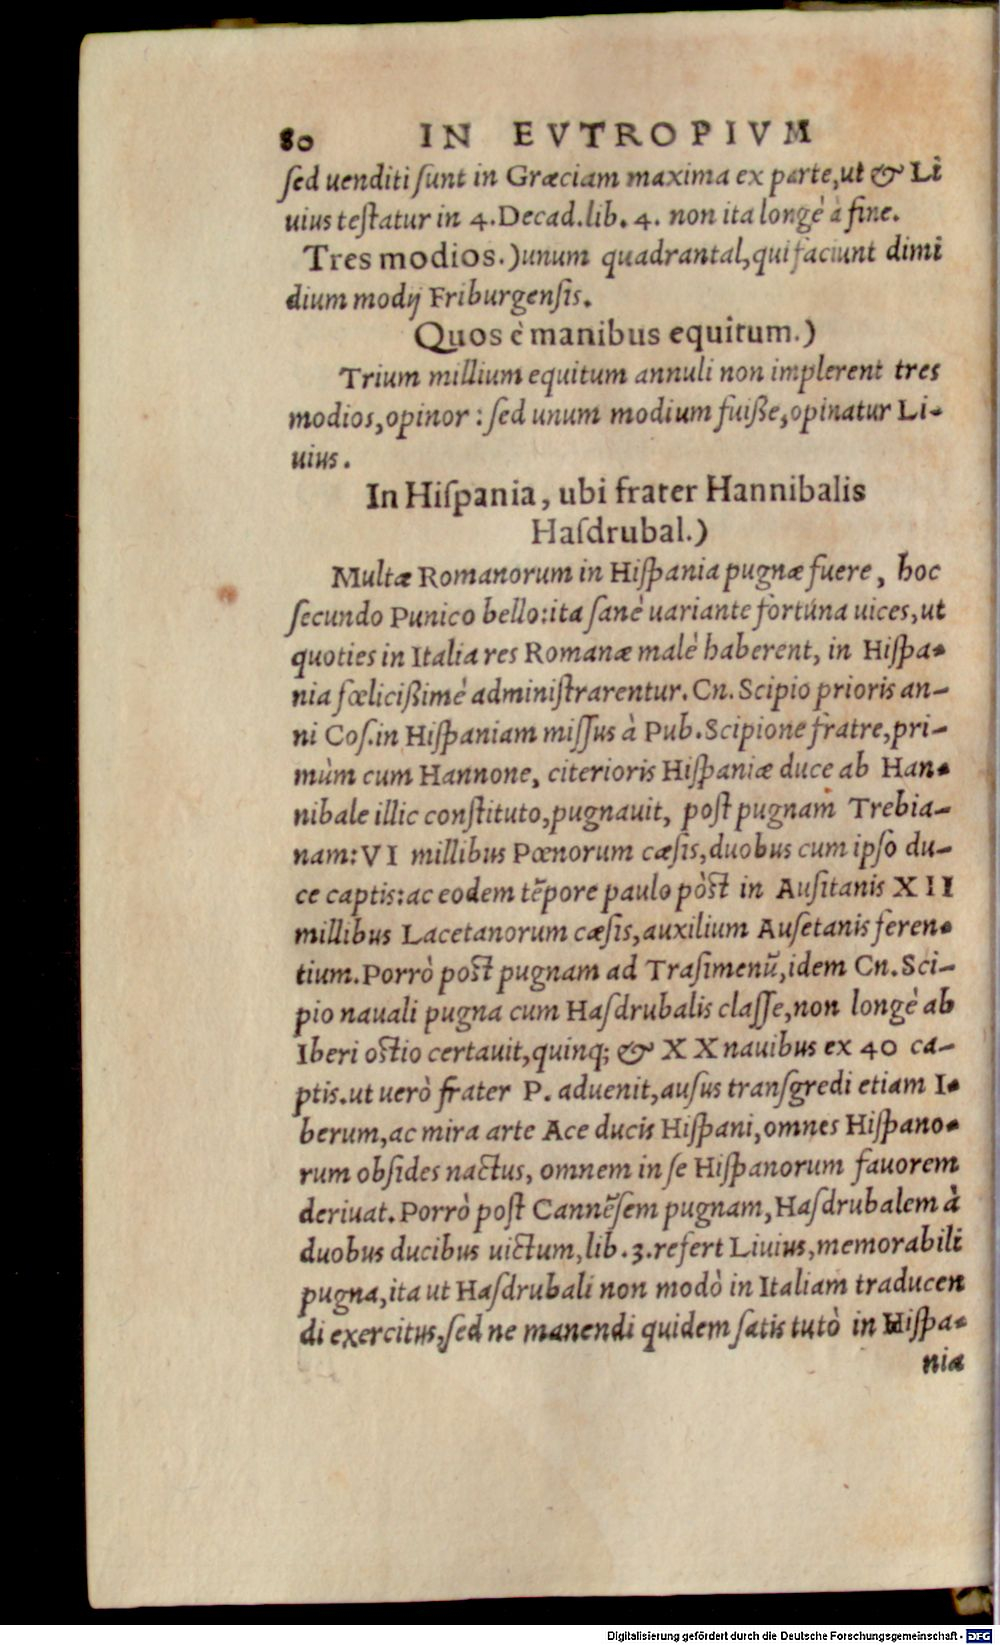 80 IN EVTROPIVM
ſed uenditi ſunt in Græciam maxima ex parte, ut & Li
uius teſtatur in 4. Decad. lib. 4. non ita longè à fine.
Tres modios.) unum quadrantal, qui faciunt dimi
dium modij Friburgenſis.
Quos è manibus equitum.)
Trium millium equitum annuli non implerent tres
modios, opinor : ſed unum modium fuiße, opinatur Li-
uius.
In Hiſpania, ubi frater Hannibalis
Haſdrubal.)
Multæ Romanorum in Hiſpania pugnæ fuere, hoc
ſecundo Punico bello: ita ſanè uariante fortuna uices, ut
quoties in Italia res Romanæ malè haberent, in Hiſpa-
nia fœlicißimè adminiſtrarentur. Cn. Scipio prioris an-
ni Coſ. in Hiſpaniam miſſus à Pub. Scipione fratre, pri-
mùm cum Hannone, citerioris Hiſpaniæ duce ab Han-
nibale illic conſtituto, pugnauit, poſt pugnam Trebia-
nam: VI millibus Pœnorum cæſis, duobus cum ipſo du-
ce captis: ac eodem tẽpore paulo pòst in Auſitanis XII
millibus Lacetanorum cæſis, auxilium Auſetanis feren-
tium. Porrò post pugnam ad Traſimenũ, idem Cn. Sci-
pio nauali pugna cum Haſdrubalis claſſe, non longè ab
Iberi ostio certauit, quinq; & XX nauibus ex 40 ca-
ptis. ut uerò frater P. aduenit, auſus tranſgredi etiam I-
berum, ac mira arte Ace ducis Hiſpani, omnes Hiſpano-
rum obſides nactus, omnem in ſe Hiſpanorum fauorem
deriuat. Porrò poſt Cannẽſem pugnam, Haſdrubalem à
duobus ducibus uictum, lib. 3. refert Liuius, memorabili
pugna, ita ut Haſdrubali non modò in Italiam traducen
di exercitus, ſed ne manendi quidem ſatis tutò in Hiſpa-
niæ
Digitalisierung gefördert durch die Deutsche Forschungsgemeinschaft - DFG